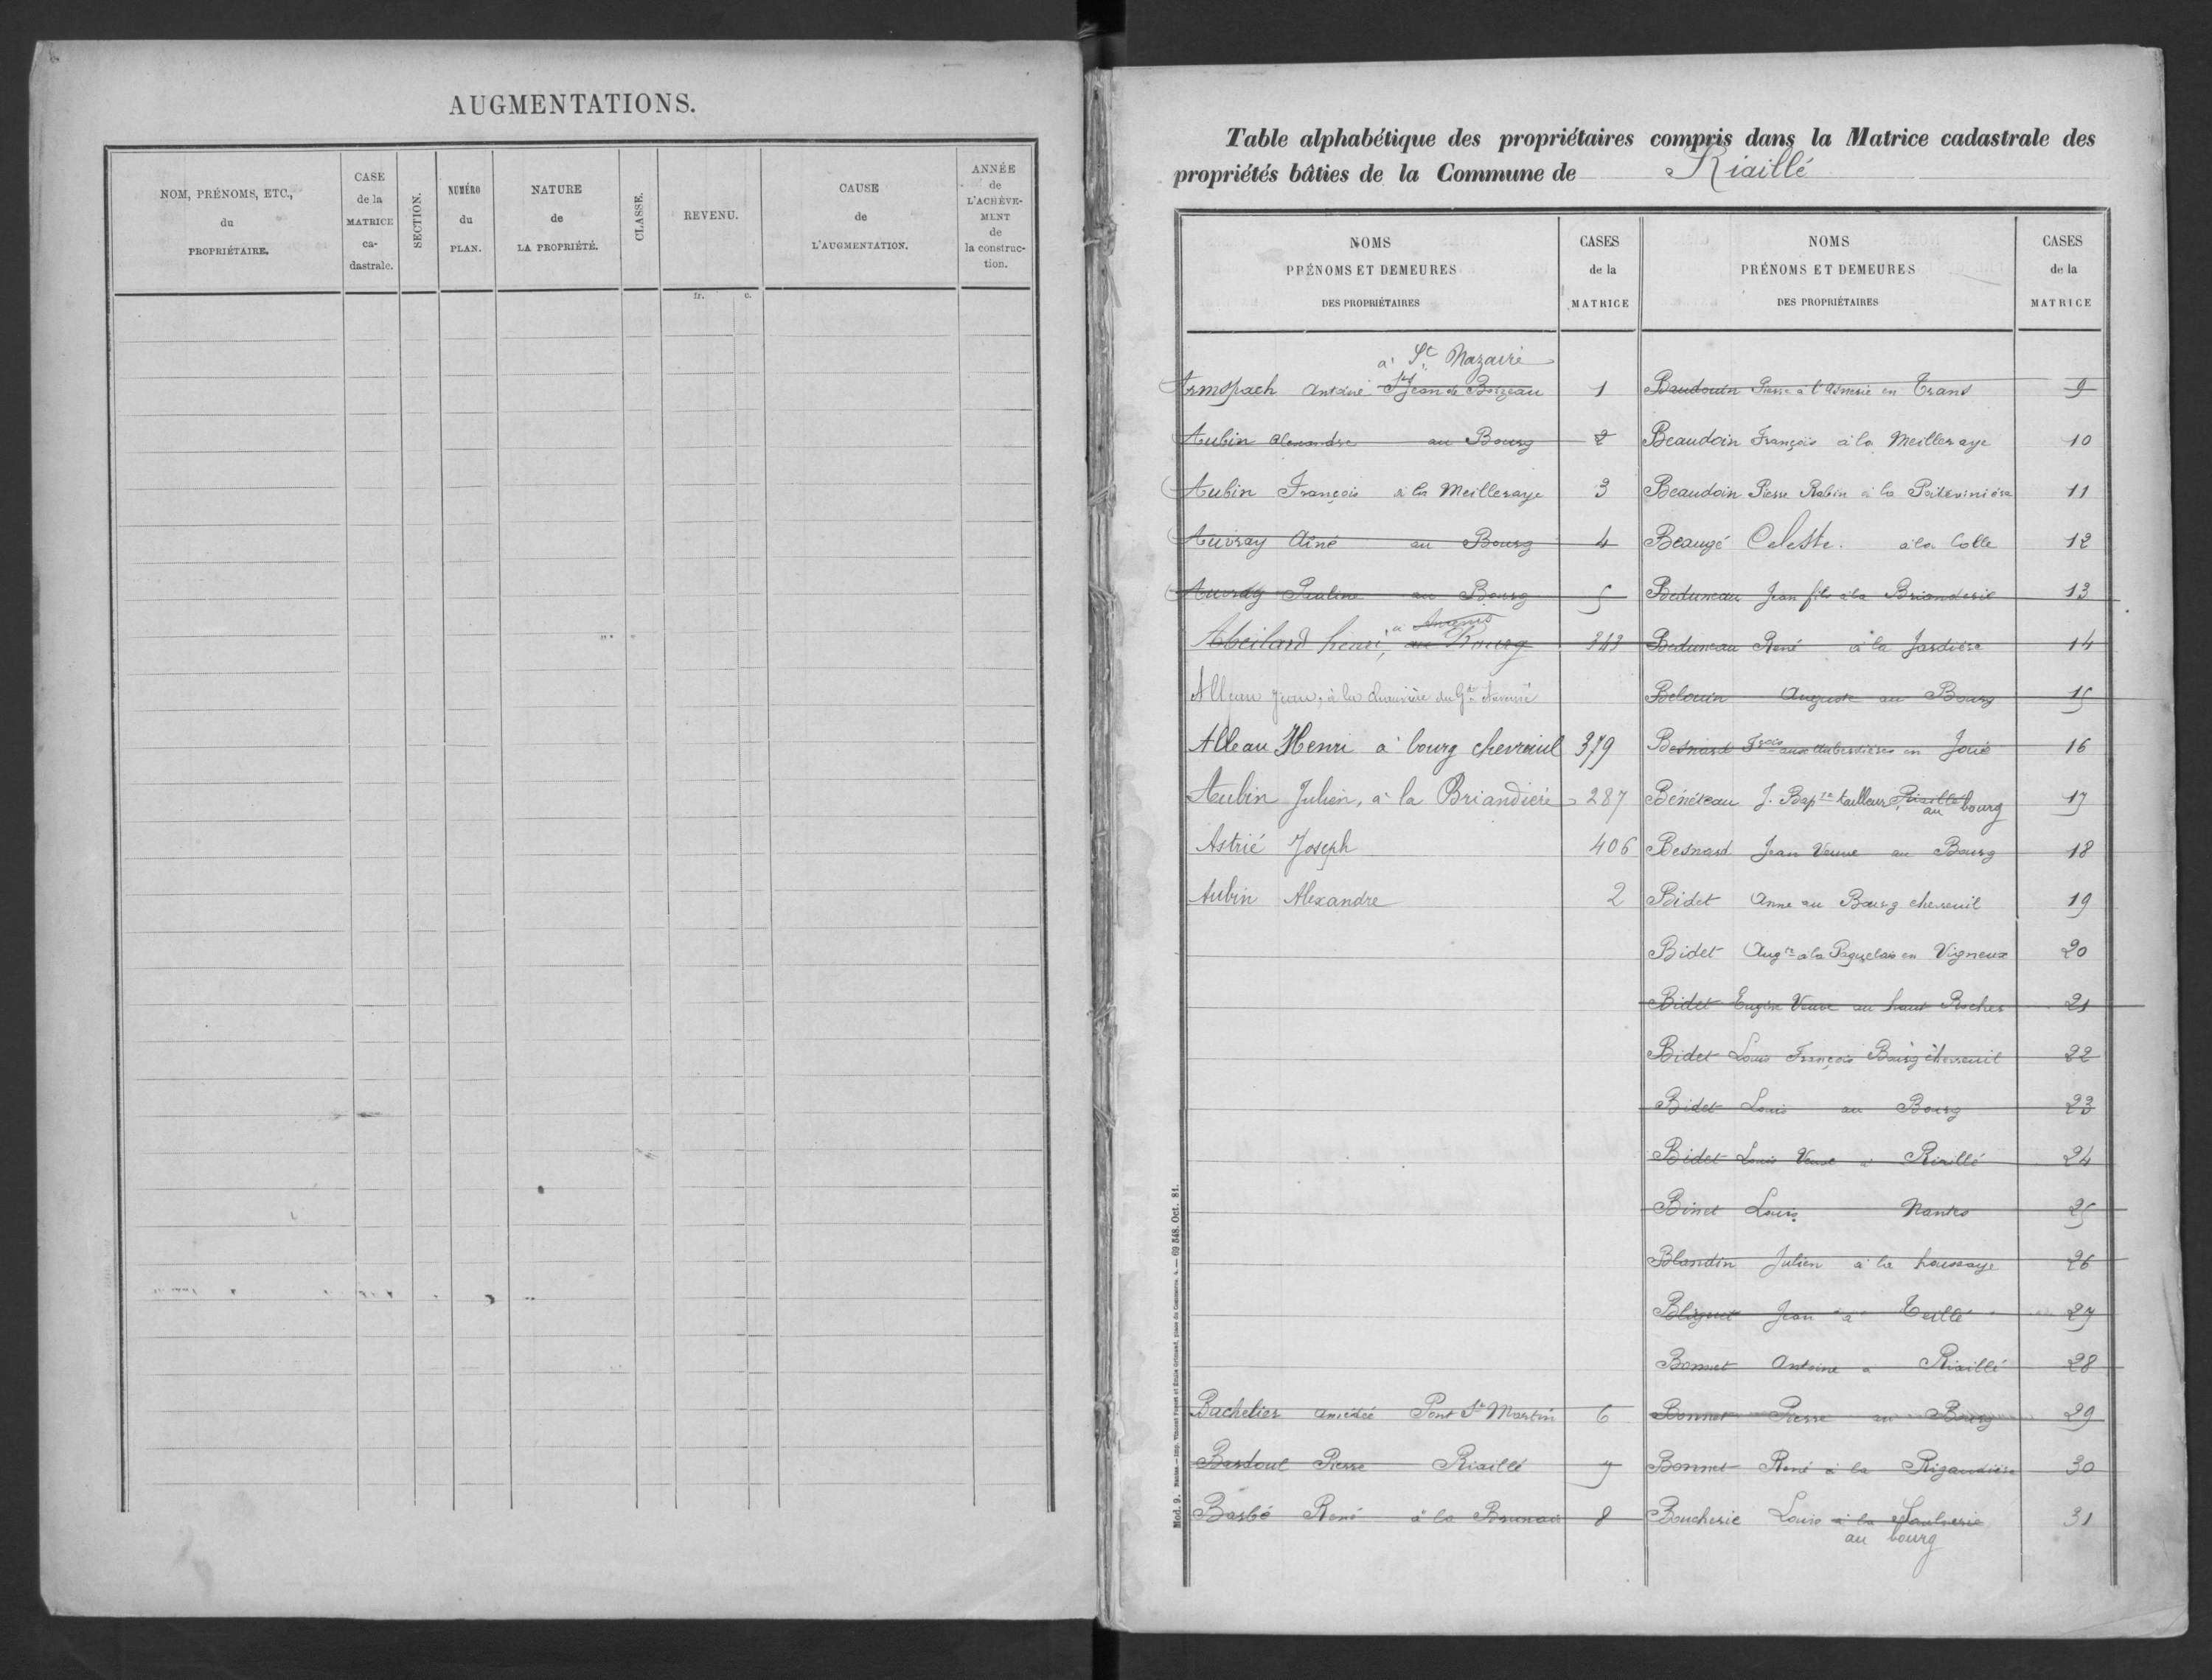 AUGMENTATIONS.
NOM, PRÉNOMS, ETC.,
du
PROPRIÉTAIRE.
CASE
de la
MATRICE
ca-
dastrale.
SECTION.
NUMÉRO
du
PLAN.
NATURE
de
LA PROPRIÉTÉ.
CLASSE.
REVENU.
CAUSE
de
L'AUGMENTATION.
ANNÉE
de
L'ACHÈVE-
MENT
de
la construc-
tion.
fr. c.
Table alphabétique des propriétaires compris dans la Matrice cadastrale des
propriétés bâties de la Commune de Riaillé
NOMS
PRÉNOMS ET DEMEURES
DES PROPRIÉTAIRES
CASES
de la
MATRICE
à St Nazaire
Armspach Antoine St Jean de Boiseau 1
Aubin Alexandre au Bourg 2
Aubin François à la Meilleraye 3
Auvray Aîné au Bourg 4
Auvray Pauline au Bourg 5
à Ancenis
Abeilard henri, au Bourg 343
Alleau Jean, à la
Alleau Henri à bourg chevreuil 379
Aubin Julien, à la Briandière 287
Astrié Joseph 406
Aubin Alexandre 2
Bachelier Amédée Pont St Martin 6
Bardoul Pierre Riaillé 7
Barbé René à la Brunais 8
NOMS
PRÉNOMS ET DEMEURES
DES PROPRIÉTAIRES
CASES
de la
MATRICE
Baudouin Pierre à l'Asnerie en Trans 9
Beaudoin François à la Meilleraye 10
Beaudoin Pierre Robin à la Poitevinière 11
Beaugé Celeste. à la Colle 12
Beduneau Jean fils à la Brianderie 13
Beduneau René à la Jardière 14
Belouin Auguste au Bourg 15
Besnard Frçois aux en Joué 16
Bénéteau J. Bapte tailleur Riaillé 17
au bourg
Besnard Jean Veuve au Bourg 18
Bidet Anne au Bourg chevreuil 19
Bidet Augte à la Paquelais en Vigneux 20
Bidet Eugène Veuve au haut Rocher 21
Bidet Louis François Bourg chevreuil 22
Bidet Louis au Bourg 23
Bidet Louis Veuve à Riaillé 24
Binet Louis Nantes 25
Blandin Julien à la houssaye 26
Jean à Teillé 27
Bonnet Antoine à Riaillé 28
Bonnet Pierre au Bourg 29
Bonnet René à la Rigaudière 30
Boucherie Louis à la 31
au bourg
Mod. 9. Nantes.— Imp. Vincent Forest et Émile Grimaud, place du Commerce, 4. — 69 548. Oct. 81.